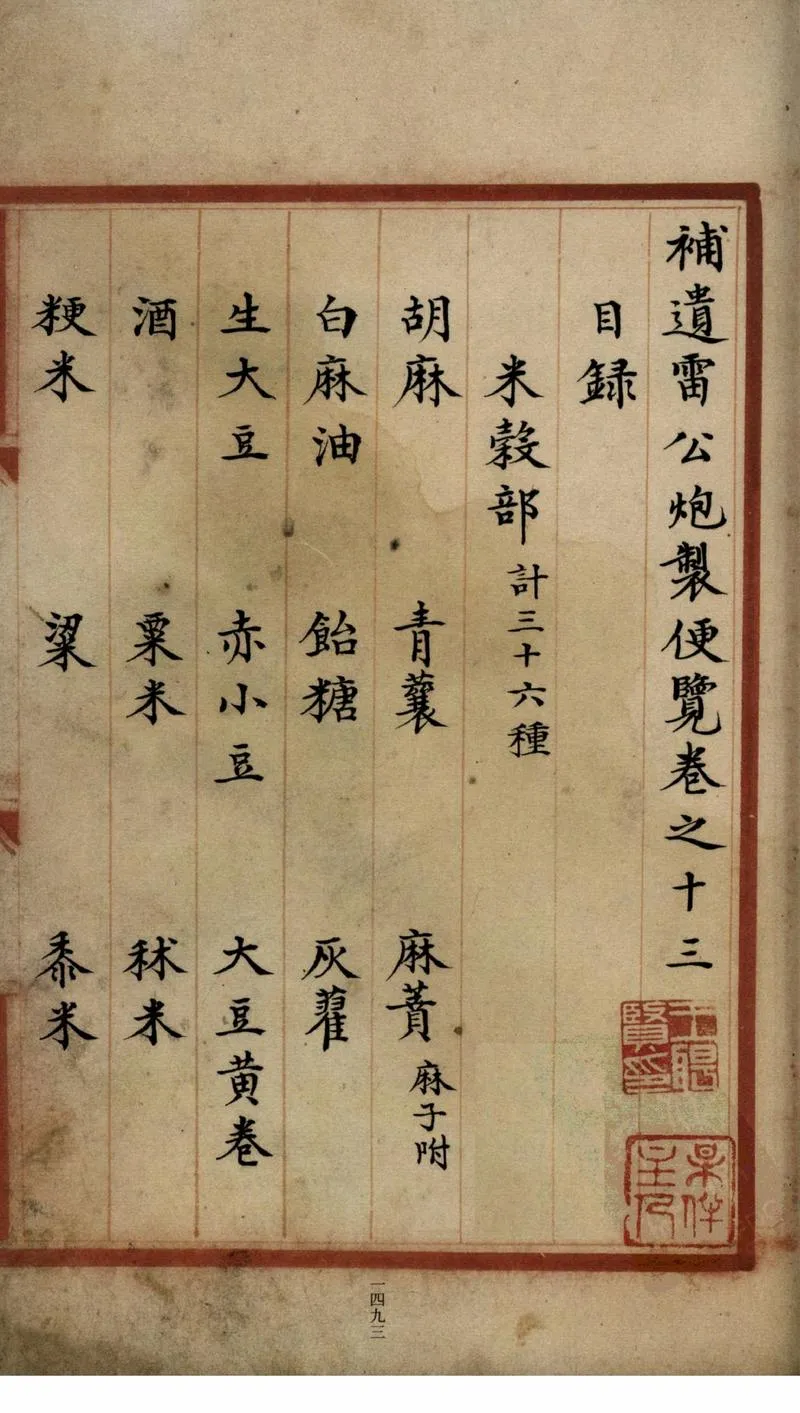 補遺雷公炮製便覽卷之十三
目録
米穀部 計三十六種
胡麻 青蘘 麻蕡 麻子附
白麻油 飴糖 灰藋
生大豆 赤小豆 大豆黄卷
酒 粟米 秫米
粳米 粱 黍米
一四九三